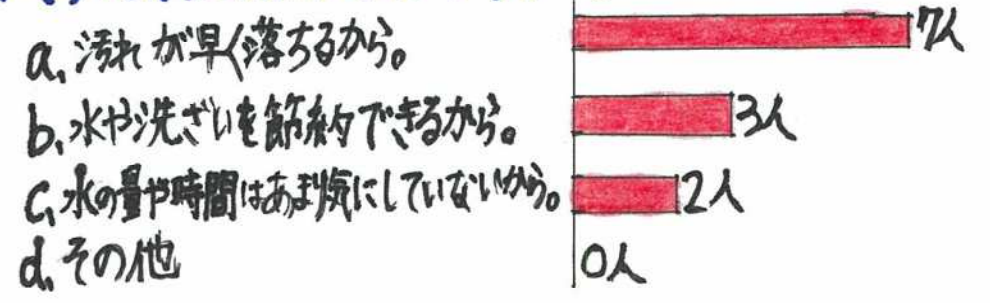 a、汚れが早く落ちるから。 7人
b、水や洗ざいを節約できるから。 3人
c、水の量や時間はあまり気にしていないから。 2人
d、その他 0人